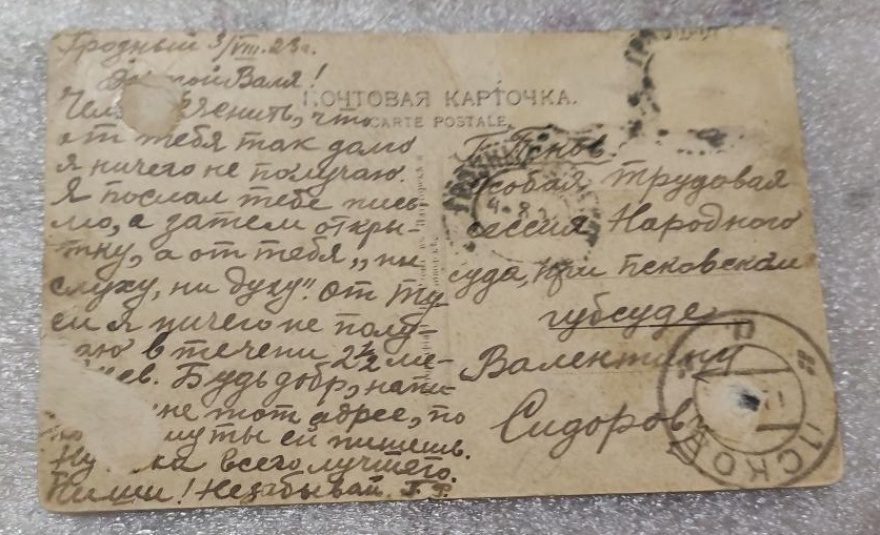 Гродный 3/VIII.23г.
Валя!
что
от тебя так долго
я ничего не получаю.
Я послал тебе пись-
мо, а затем откры-
тку, а от тебя „ни
слуху, ни духу". От
я ничего не полу-
чаю в течени 2 1/2 ме-
Будь добр, напи-
не тот адрес, по
ты ей пишешь.
всего лучшего.
Пиши! Не забывай.
ПОЧТОВАЯ КАРТОЧКА.
CARTE POSTALE.
Г. Псков.
Особая трудовая
сессия Народного
суда, при Псковском
губсуде
Валентину
Сидоров
ПСКОВ